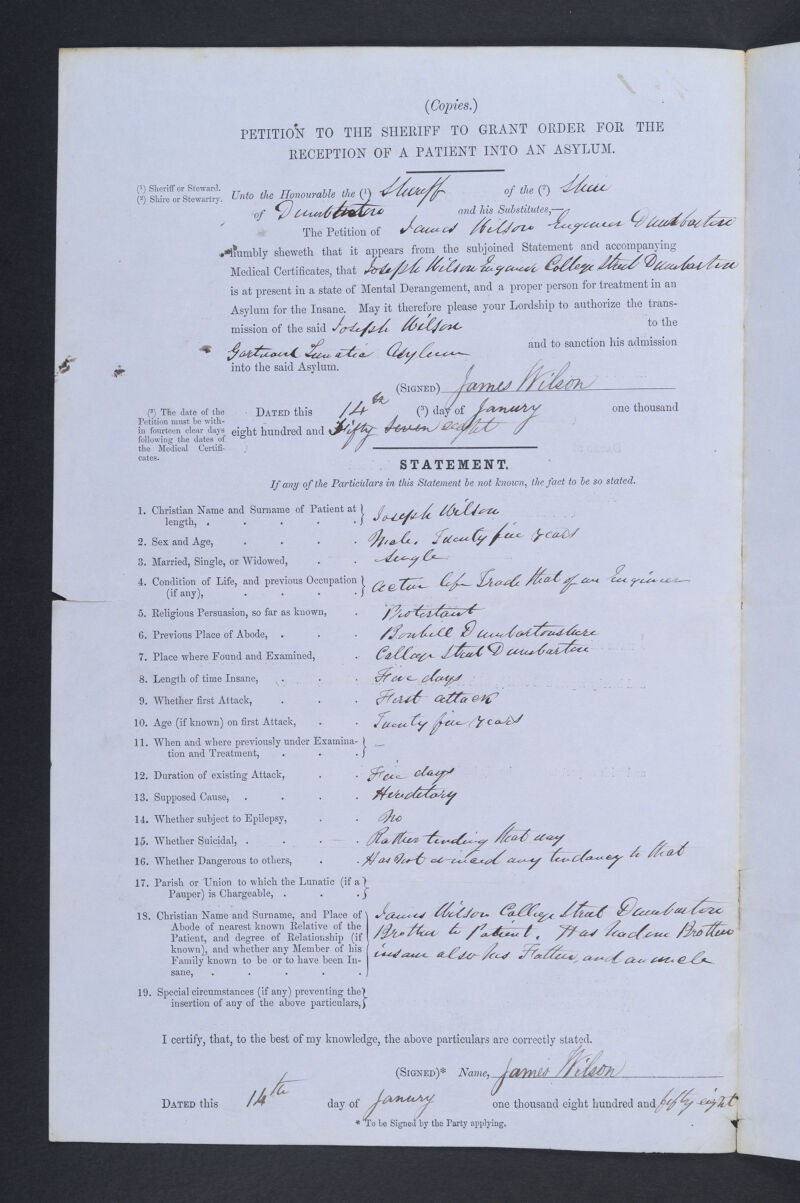 (Copies.)
PETITION TO THE SHERIFF TO GRANT ORDER FOR THE
RECEPTION OF A PATIENT INTO AN ASYLUM.
(1) Sheriff or Steward.
(2) Shire or Stewartry.
Unto the Honourable the (1) Sheriff of the (2) Shire
of Dumbarton and his Substitutes,—
The Petition of James Wilson Engineer Dumbarton
Humbly sheweth that it appears from the subjoined Statement and accompanying
Medical Certificates, that Joseph Wilson Engineer College Street Dumbarton
is at present in a state of Mental Derangement, and a proper person for treatment in an
Asylum for the Insane. May it therefore please your Lordship to authorize the trans-
mission of the said Joseph Wilson to the
Gartnavel Lunatic Asylum and to sanction his admission
into the said Asylum.
(SIGNED) James Wilson
(3) The date of the
Petition must be with-
in fourteen clear days
following the dates of
the Medical Certifi-
cates.
DATED this 14th (3) day of Janury one thousand
eight hundred and Fifty seven eight
STATEMENT.
If any of the Particulars in this Statement be not known, the fact to be so stated.
1. Christian Name and Surname of Patient at
length, . . . . . Joseph Wilson
2. Sex and Age, . . . . Male. Twenty five years
3. Married, Single, or Widowed, . . Single
4. Condition of Life, and previous Occupation
(if any), . . . . Active life Trade that of an Engineer
5. Religious Persuasion, so far as known, . Protestant
6. Previous Place of Abode, . . . Bonhill Dumbartonshire
7. Place where Found and Examined, . College Street Dumbarton
8. Length of time Insane, . . . Five days
9. Whether first Attack, . . . First attack
10. Age (if known) on first Attack, . . Twenty five years
11. When and where previously under Examina-
tion and Treatment, . . . —
12. Duration of existing Attack, . . Five days
13. Supposed Cause, . . . . Heredetary
14. Whether subject to Epilepsy, . . No
15. Whether Suicidal, . . . . Rather tending that way
16. Whether Dangerous to others, . . Has not evinced any tendancy to that
17. Parish or Union to which the Lunatic (if a
Pauper) is Chargeable, . . .
18. Christian Name and Surname, and Place of
Abode of nearest known Relative of the
Patient, and degree of Relationship (if
known), and whether any Member of his
Family known to be or to have been In-
sane, . . . . .
James Wilson College Street Dumbarton
Brother to Patient. Has had one Brother
insane also his Father, and an uncle
19. Special circumstances (if any) preventing the
insertion of any of the above particulars,
I certify, that, to the best of my knowledge, the above particulars are correctly stated.
(SIGNED)* Name, James Wilson
DATED this 14th day of Janury one thousand eight hundred and fifty eight
* To be Signed by the Party applying.